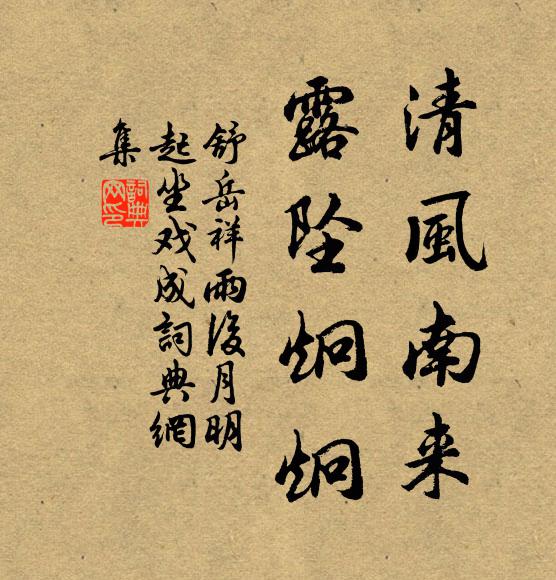 清風南来
露坠炯炯
舒岳祥雨後月明
起坐戏成詞典網
集
詞典
网印